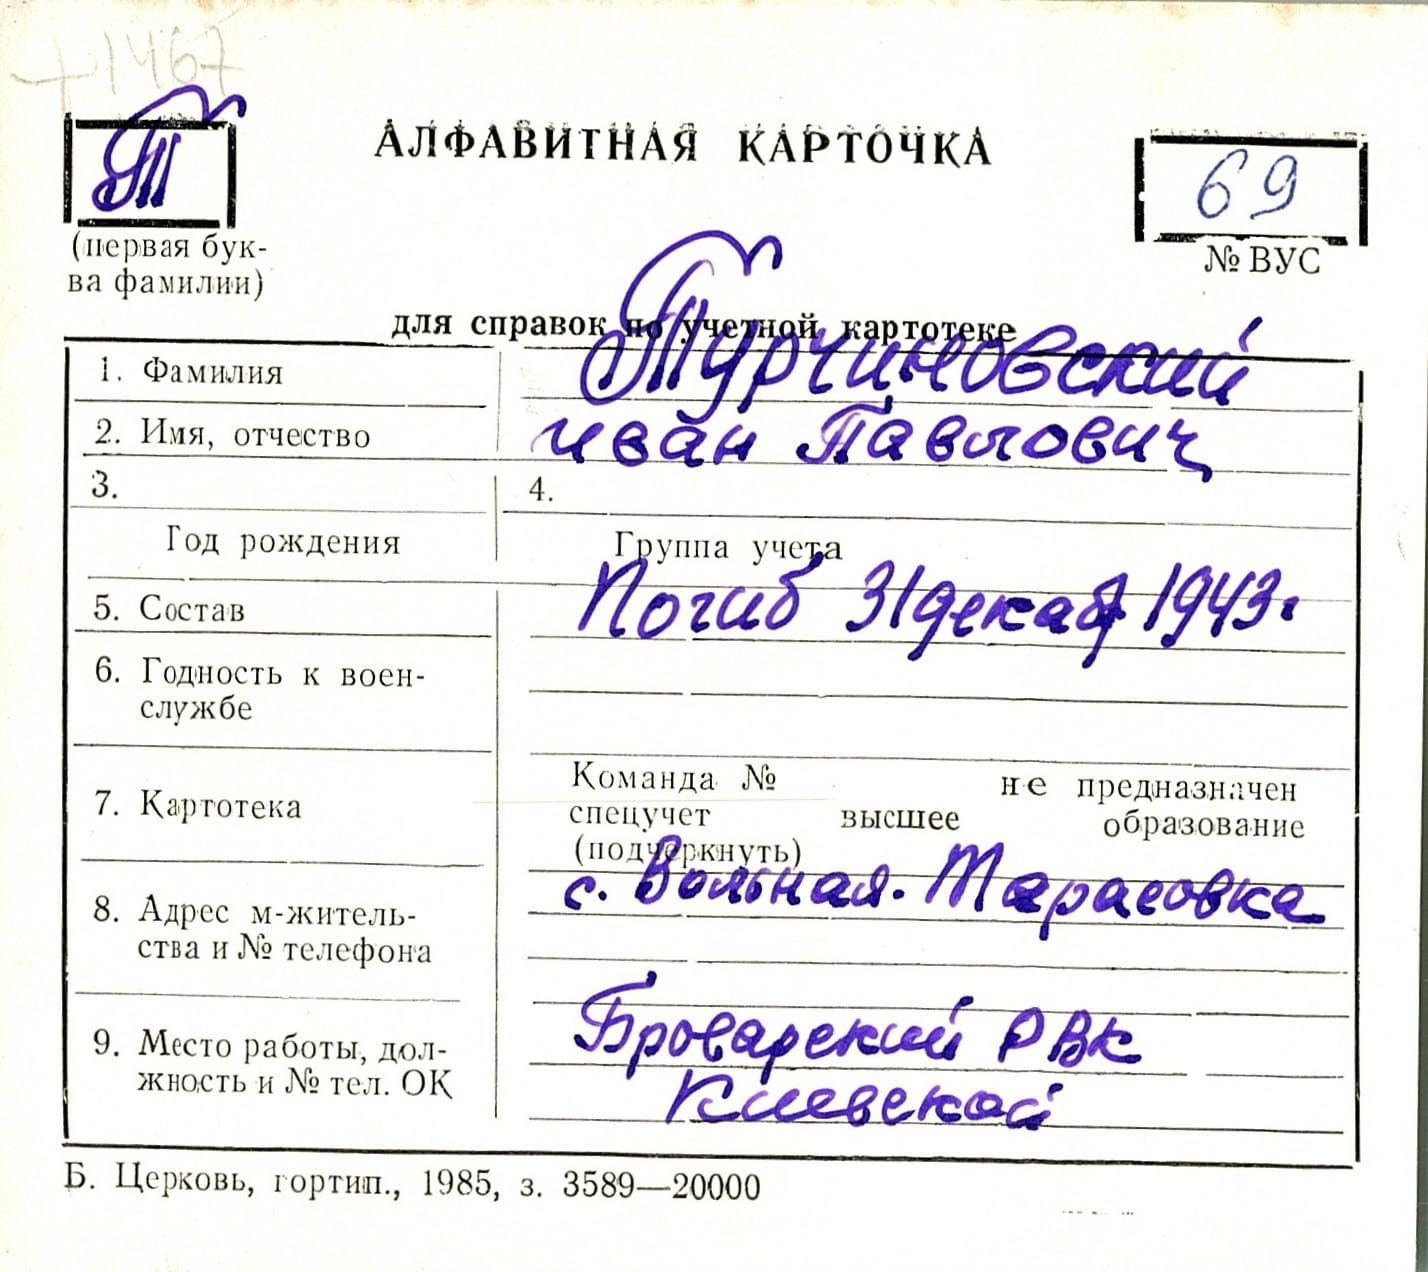 +1467
Т
АЛФАВИТНАЯ КАРТОЧКА
69
(первая бук-
ва фамилии)
№ ВУС
для справок по учетной картотеке
1. Фамилия Турчиновский
2. Имя, отчество иван Павлович
3. 4.
Год рождения Группа учета
5. Состав Погиб 31 декаб 1943г
6. Годность к воен-
службе
7. Картотека
Команда № не предназначен
спецучет высшее образование
(подчеркнуть)
8. Адрес м-житель-
ства и № телефона
с. Вольная. Тарасовка
9. Место работы, дол-
жность и № тел. ОК
Броварский РВК
Киевской
Б. Церковь, гортип., 1985, з. 3589—20000